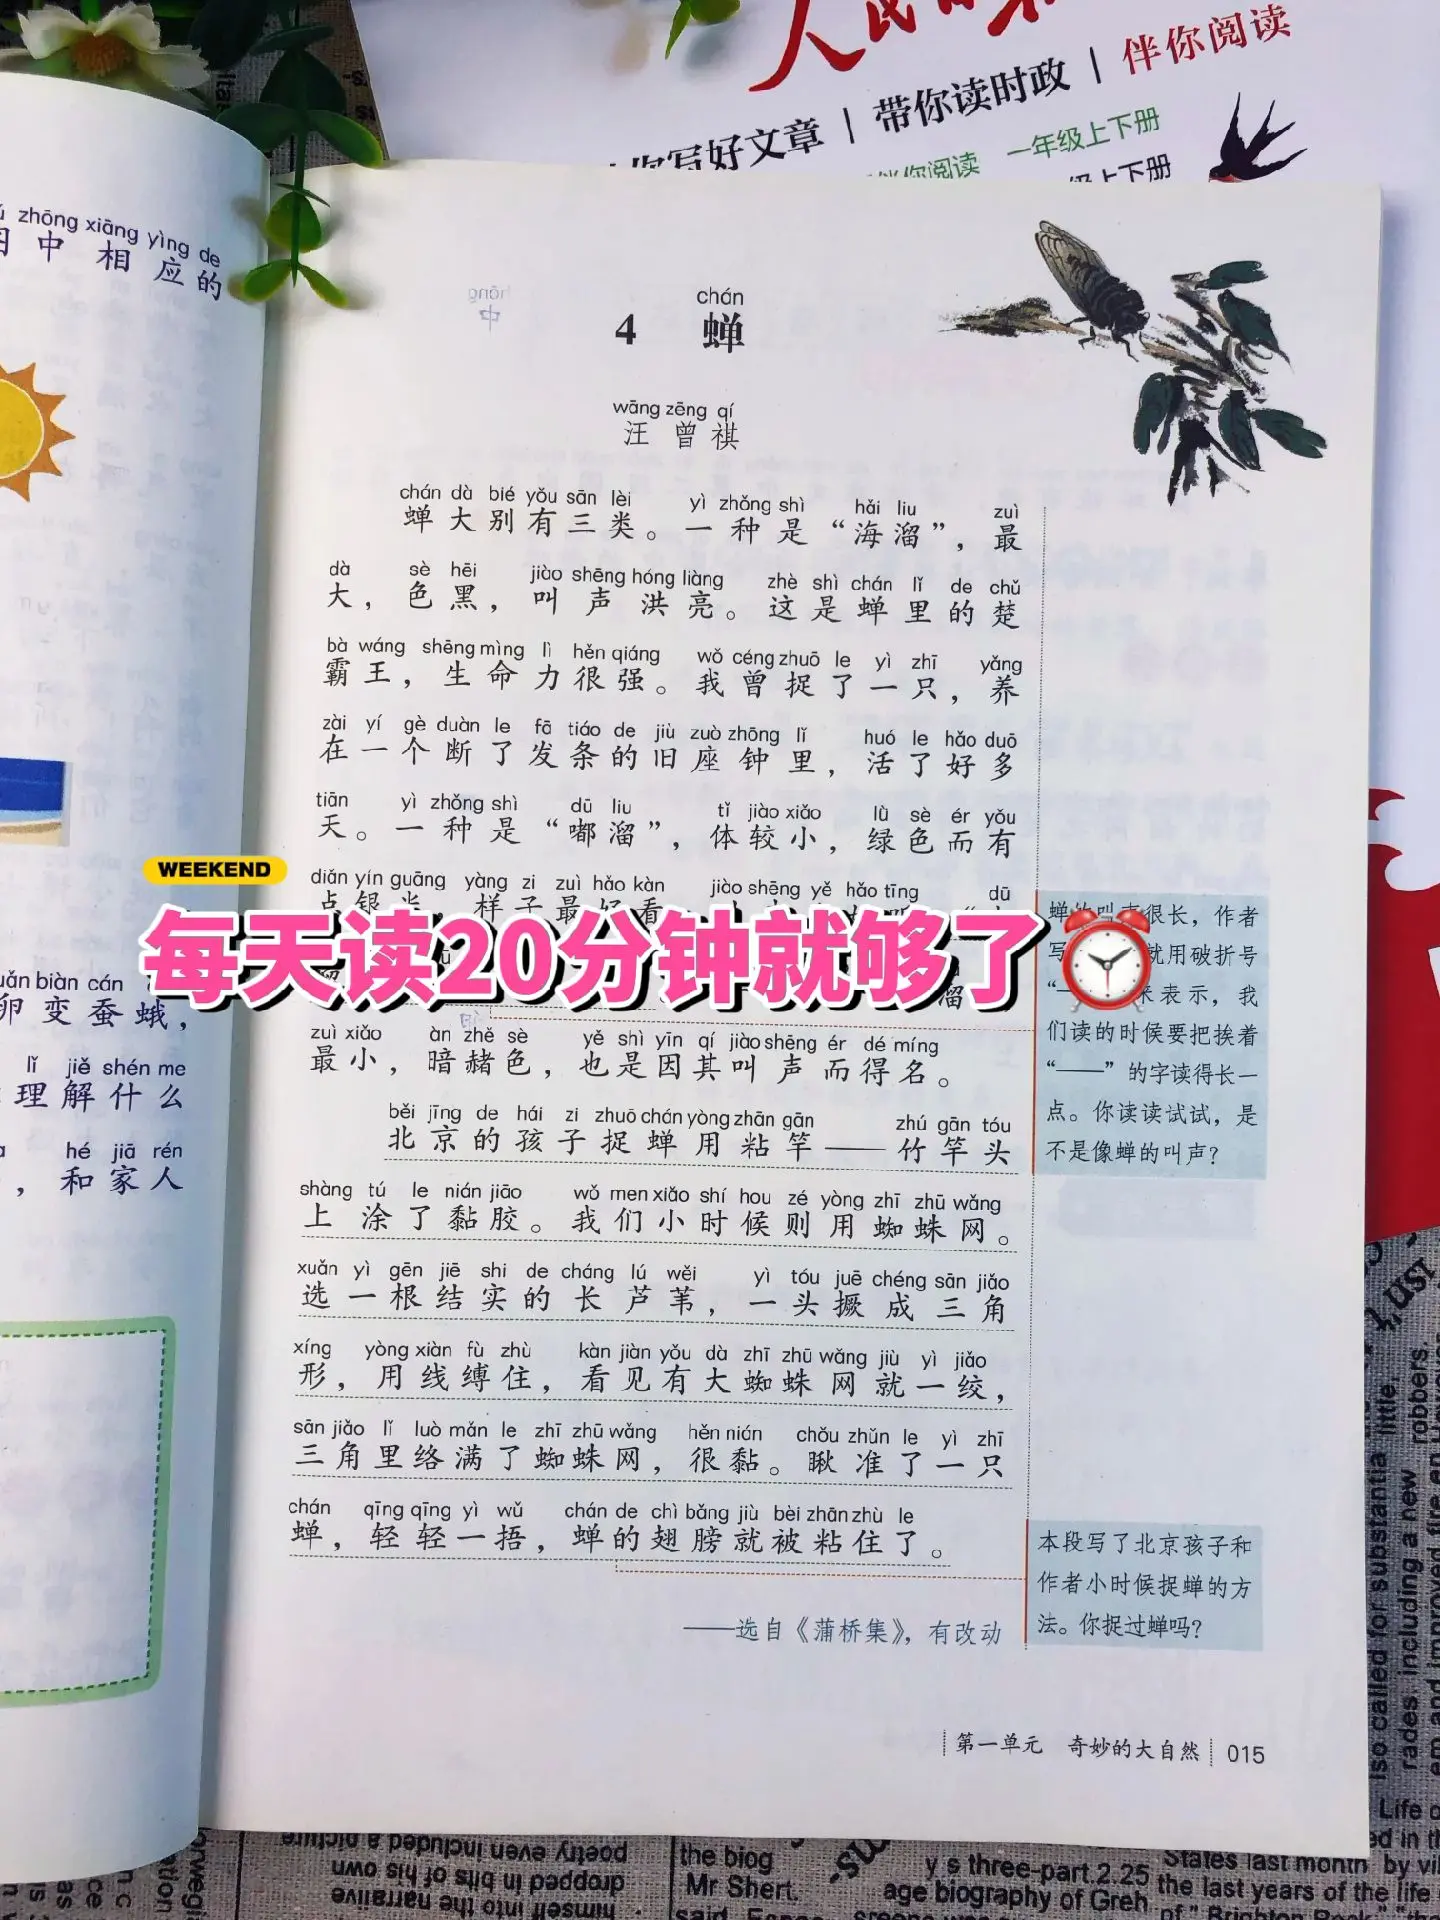 伴你阅读
带你读时政
写好文章
一年级上下册
伴你阅读
级上下册
zhōng xiāng yìng de
中相应的
biàn cán
卵变蚕蛾，
lǐ jiě shén me
理解什么
hé jiā rén
，和家人
chán
4 蝉
wāng zēng qí
汪曾祺
chán dà bié yǒu sān lèi yì zhǒng shì hǎi liu zuì
蝉大别有三类。一种是“海溜”，最
dà sè hēi jiào shēng hóng liàng zhè shì chán lǐ de chǔ
大，色黑，叫声洪亮。这是蝉里的楚
bà wáng shēng mìng lì hěn qiáng wǒ céng zhuō le yì zhī yǎng
霸王，生命力很强。我曾捉了一只，养
zài yí gè duàn le fā tiáo de jiù zuò zhōng lǐ huó le hǎo duō
在一个断了发条的旧座钟里，活了好多
tiān yì zhǒng shì dū liu tǐ jiào xiǎo lǜ sè ér yǒu
天。一种是“嘟溜”，体较小，绿色而有
diǎn yín guāng yàng zi zuì hǎo kàn jiào shēng yě hǎo tīng dū
点银光，样子最好看
WEEKEND
每天读20分钟就够了
溜
zuì xiǎo àn zhě sè yě shì yīn qí jiào shēng ér dé míng
最小，暗赭色，也是因其叫声而得名。
běi jīng de hái zi zhuō chán yòng zhān gān zhú gān tóu
北京的孩子捉蝉用粘竿——竹竿头
shàng tú le nián jiāo wǒ men xiǎo shí hou zé yòng zhī zhū wǎng
上涂了黏胶。我们小时候则用蜘蛛网。
xuǎn yì gēn jiē shi de cháng lú wěi yì tóu juē chéng sān jiǎo
选一根结实的长芦苇，一头撅成三角
xíng yòng xiàn fù zhù kàn jiàn yǒu dà zhī zhū wǎng jiù yì jiǎo
形，用线缚住，看见有大蜘蛛网就一绞，
sān jiǎo lǐ luò mǎn le zhī zhū wǎng hěn nián chǒu zhǔn le yì zhī
三角里络满了蜘蛛网，很黏。瞅准了一只
chán qīng qīng yì wǔ chán de chì bǎng jiù bèi zhān zhù le
蝉，轻轻一捂，蝉的翅膀就被粘住了。
——选自《蒲桥集》，有改动
蝉的叫声很长，作者
就用破折号
来表示，我
们读的时候要把挨着
“——”的字读得长一
点。你读读试试，是
不是像蝉的叫声？
本段写了北京孩子和
作者小时候捉蝉的方
法。你捉过蝉吗？
第一单元 奇妙的大自然 015
the biog
Mr Shert.
y s three-part.2.25
age biography of Greh
States last month by
the last years of the
Life